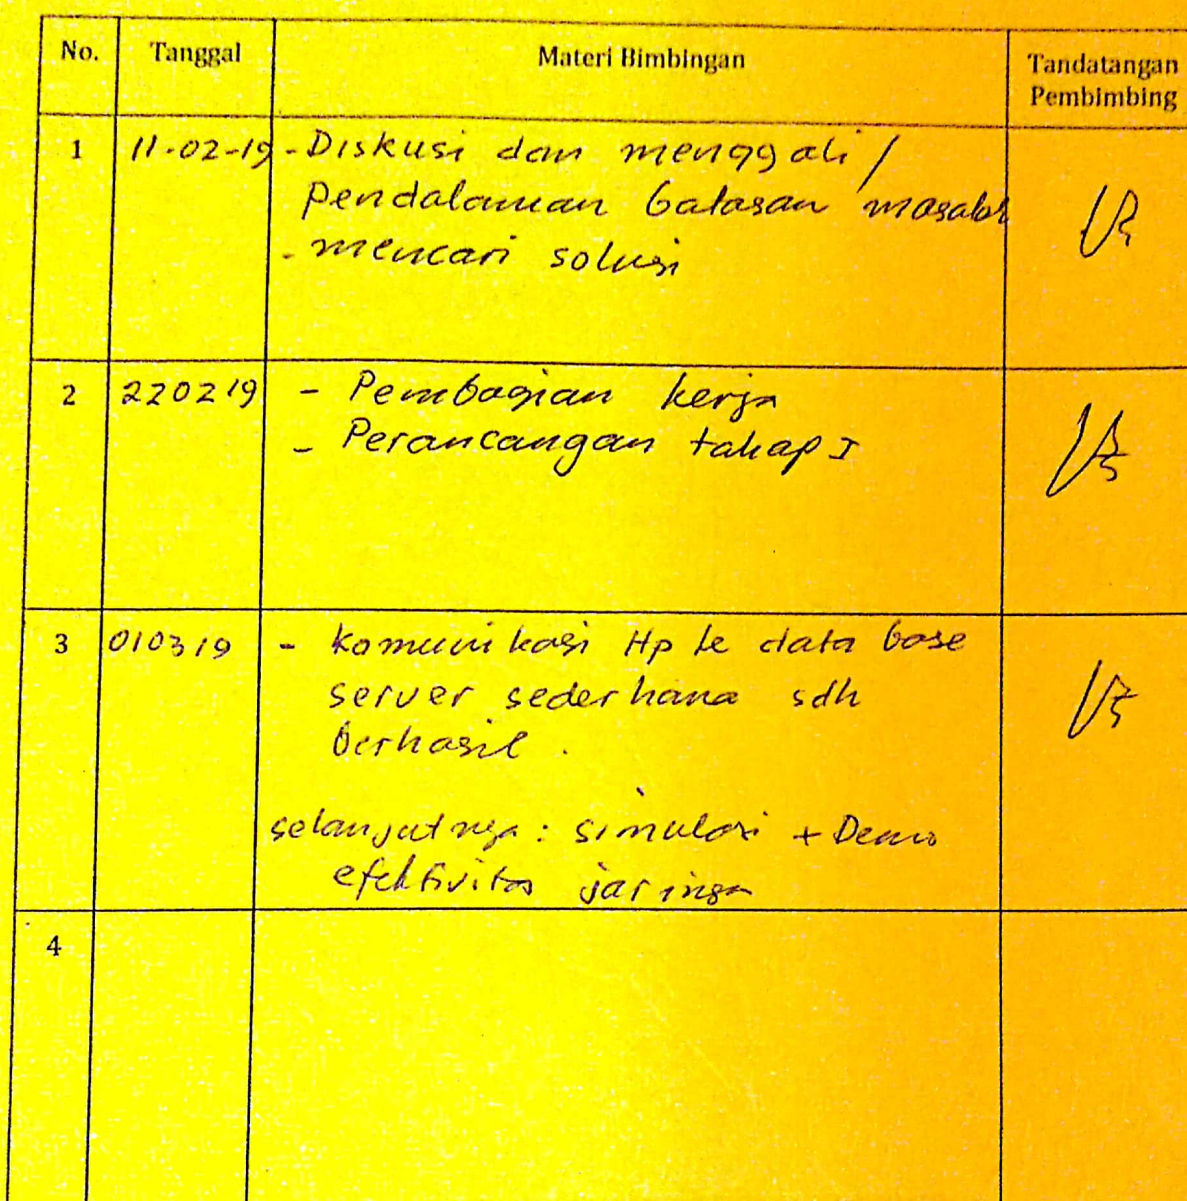 No. Tanggal Materi Bimbingan Tandatangan
Pembimbing
1 11-02-19 - Diskusi dan menggali /
pendalaman batasan masalah
- mencari solusi
2 220219 - Pembagian kerja
- Perancangan tahap I
3 010319 - Komunikasi Hp ke data base
server sederhana sdh
berhasil.
selanjutnya: simulasi + Demo
efektivitas jaringan
4